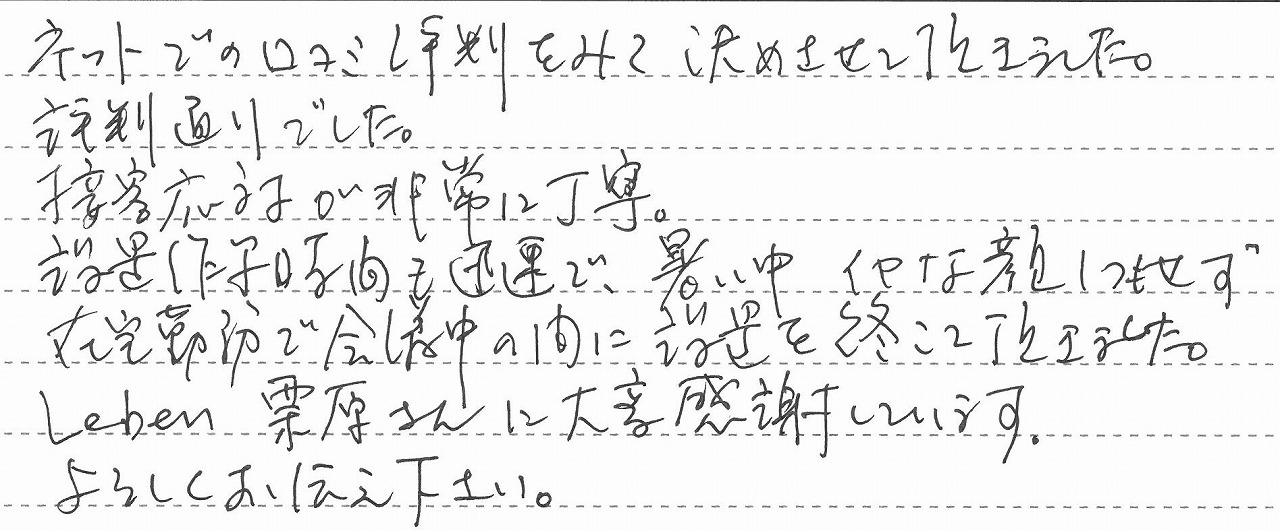 ネットでの口コミ評判をみて決めさせて頂きました。
評判通りでした。
接客応対が非常に丁寧。
設置作業時間も迅速で、暑い中イヤな顔1つもせず
在宅勤務で会議中の間に設置を終えて頂きました。
Leben 栗原さんに大変感謝しています。
よろしくお伝え下さい。